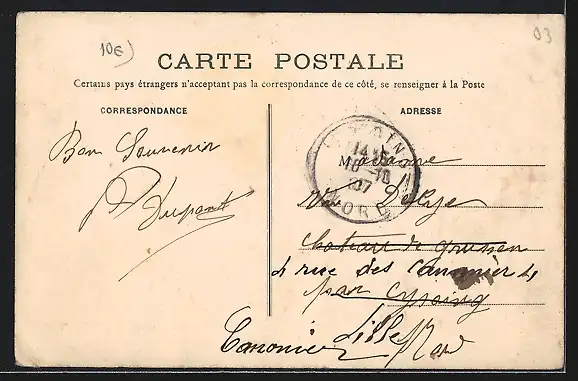 10€
03
CARTE POSTALE
Certains pays étrangers n'acceptant pas la correspondance de ce côté, se renseigner à la Poste
CORRESPONDANCE
ADRESSE
Bon Souvenir
Dupont
14
10 - 10
07
NORD
Madame
Vve
Chateau de
4 rue des Canonniers
par Cysoing
Lille Nord